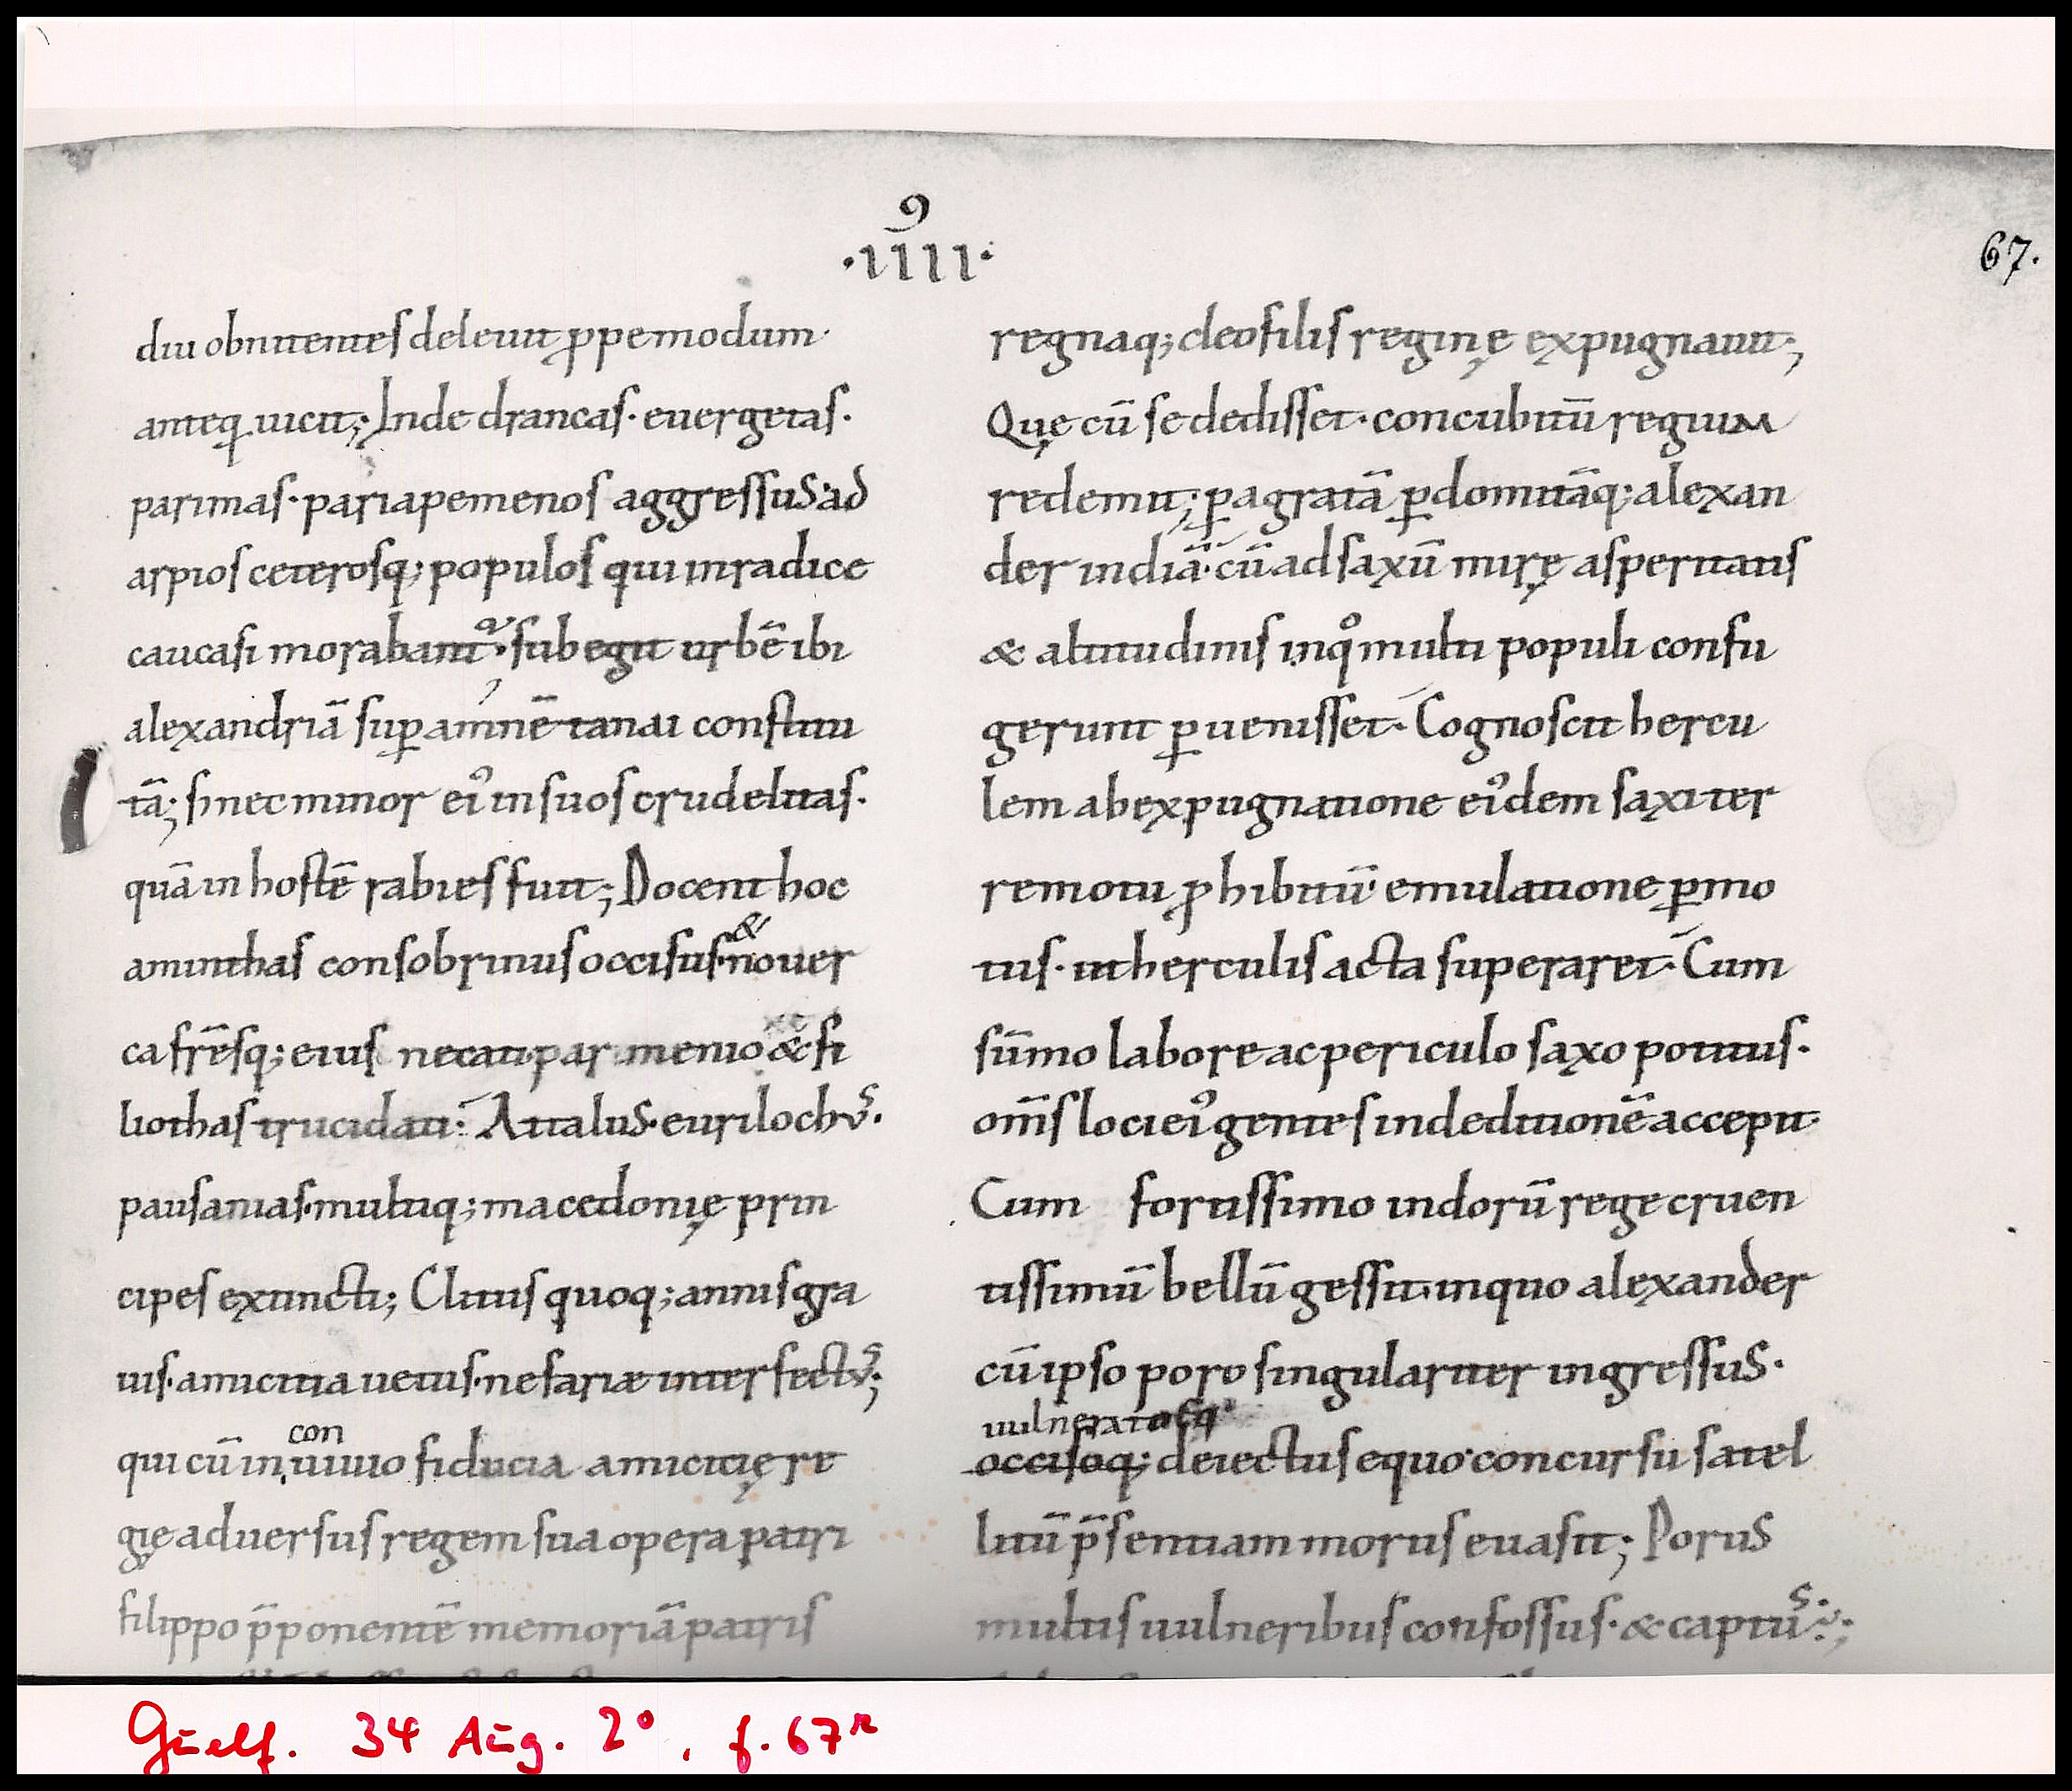 9
·IIII·
67.
diu obnitentes deleuit ꝓpemodum·
anteꝗ uicit; Inde drancas· euergetas·
parimas· pariapemenos aggressus· ad
arpios ceterosq; populos qui inradice
caucasi morabant᷑· subegit urbē ibi
alexandriā suꝑ amnē tanai constitu
tā; sı nec minor eiꝰ in suos crudelitas·
quā in hostē rabies fuit; Docent hoc
aminthas consobrinus occisus· &
nouer
ca fr̄esq; eius necati· parmenio & fi
liothas trucidati· Attalus· eurilochus·
pausanias· multiq; macedonię prin
cipes extincti; Clitus quoq; annis gra
uis· amicitia uetus· nefariæ interfectus;
con
qui cū in uiuio fiducia amicicię re
gię aduersus regem sua opera patri
filippo p̄ponentē memoriā patris
regnaq; cleofilis reginę expugnauit;
Quę cū se dedisset· concubitū regium
redemit; ꝑagratā ꝑdomitāq; alexan
der indiā· cū ad saxū mirę asperitatis
& altitudinis inqͦ multi populi confu
gerunt ꝑuenisset· Cognoscit hercu
lem ab expugnatione eiꝰdem saxi ter
remotu ꝓhibitū· emulatione ꝑmo
tus· ut herculis acta superaret· Cum
sūmo labore ac periculo saxo potitus·
om̄s loci eiꝰ gentes in deditionē accepit·
Cum fortissimo indorū rege cruen
tissimū bellū gessit· inquo alexander
cū ipso poro singulariter ingressus·
uulneratoeq·
occisoq; deiectus equo· concursu satel
litū p̄sentiam mortis euasit; Porus
multis uulneribus confossus· & captus·;
Guelf. 34 Aug. 2°, f. 67r